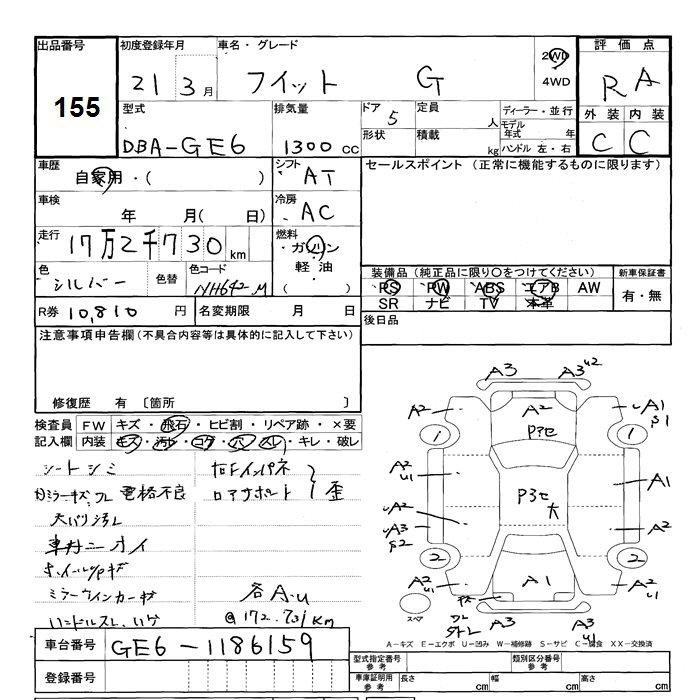 出品番号 初度登録年月 車名・グレード 評価点
155
21 3月 フィット G 2WD 4WD R A
型式 排気量 ドア 5 定員 人 ディーラー・並行 外装 内装
DBA-GE6 1300 cc 形状 積載 kg モデル年式 年 ハンドル 左・右 C C
車歴 自家用・( ) シフト AT セールスポイント (正常に機能するものに限ります)
車検 年 月( 日) 冷房 AC
走行 17万2千730 km 燃料 ・ガソリン 軽油 ・( )
色 シルバー 色替 色コード NH642M
装備品 (純正品に限り○をつけてください) 新車保証書
PS PW ABS エアB AW 有・無
SR ナビ TV 本革
R券 10,810 円 名変期限 月 日 後日品
注意事項申告欄(不具合内容等は具体的に記入して下さい)
修復歴 有 〔箇所 〕
検査員 FW キズ・飛石・ヒビ割・リペア跡・×要
記入欄 内装 キズ・汚れ・コゲ・穴・スレ・キレ・破レ
シートシミ 右Fインパネ
ロアサポート 歪
電格不良
天バリ汚レ
ミラーウインカーキズ 各A.u
ハンドルスレ
@172,731km
車台番号 GE6-1186159
登録番号
A3 A3 u2
A2 A2 A1 S1
1 P3セ 1
A2 u1 P3セ 大 A1
A2
A3 S2 A2
2 2
A2 u1 A1 A2 u1
スペア A3 A3 u1
A-キズ E-エクボ U-凹み W-補修跡 S-サビ C-腐食 XX-交換済
型式指定番号 参考 類別区分番号 参考
車庫証明用 参考 長さ cm 幅 cm 高さ cm